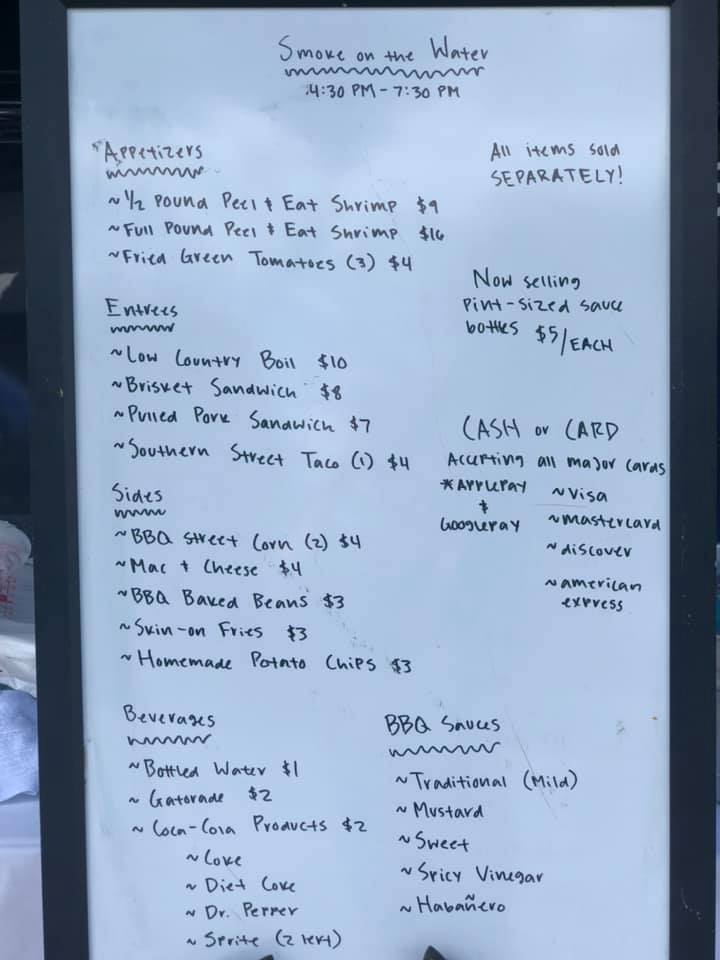 Smoke on the Water
4:30 PM - 7:30 PM
Appetizers
~ 1/2 Pound Peel & Eat Shrimp $9
~ Full Pound Peel & Eat Shrimp $16
~ Fried Green Tomatoes (3) $4
All items sold
SEPARATELY!
Now selling
pint-sized sauce
bottles $5/EACH
Entrees
~ Low Country Boil $10
~ Brisket Sandwich $8
~ Pulled Pork Sandwich $7
~ Southern Street Taco (1) $4
CASH or CARD
Accepting all major cards
*ApplePay
&
GooglePay
~ Visa
~ mastercard
~ discover
~ american
express
Sides
~ BBQ Street Corn (2) $4
~ Mac & Cheese $4
~ BBQ Baked Beans $3
~ Skin-on Fries $3
~ Homemade Potato Chips $3
Beverages
~ Bottled Water $1
~ Gatorade $2
~ Coca-Cola Products $2
~ Coke
~ Diet Coke
~ Dr. Pepper
~ Sprite (2 left)
BBQ Sauces
~ Traditional (Mild)
~ Mustard
~ Sweet
~ Spicy Vinegar
~ Habañero